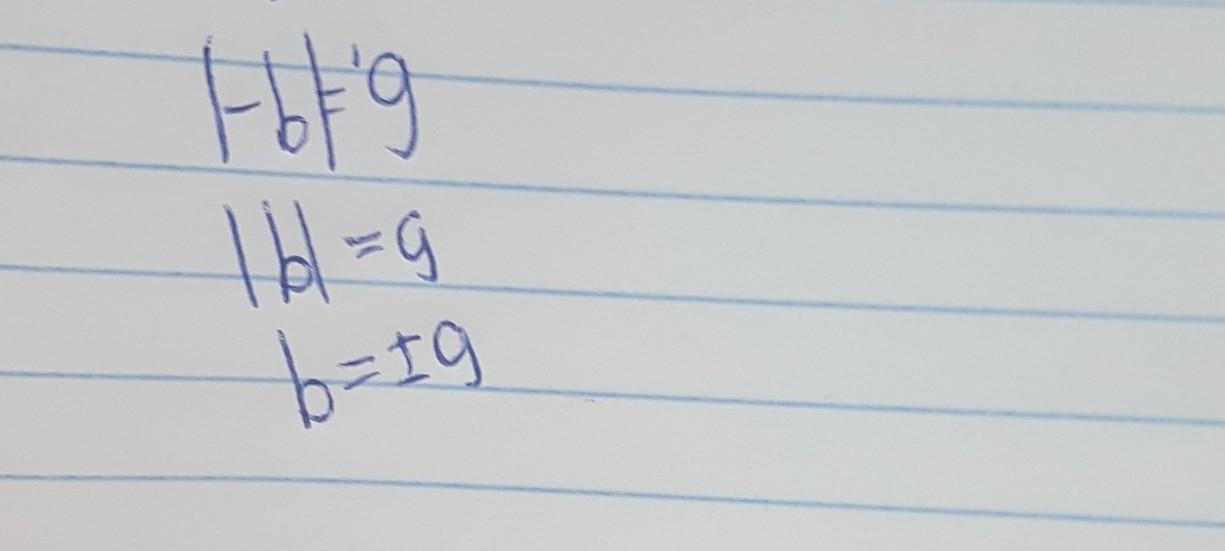 |-b|=9
|b|=9
b=±9